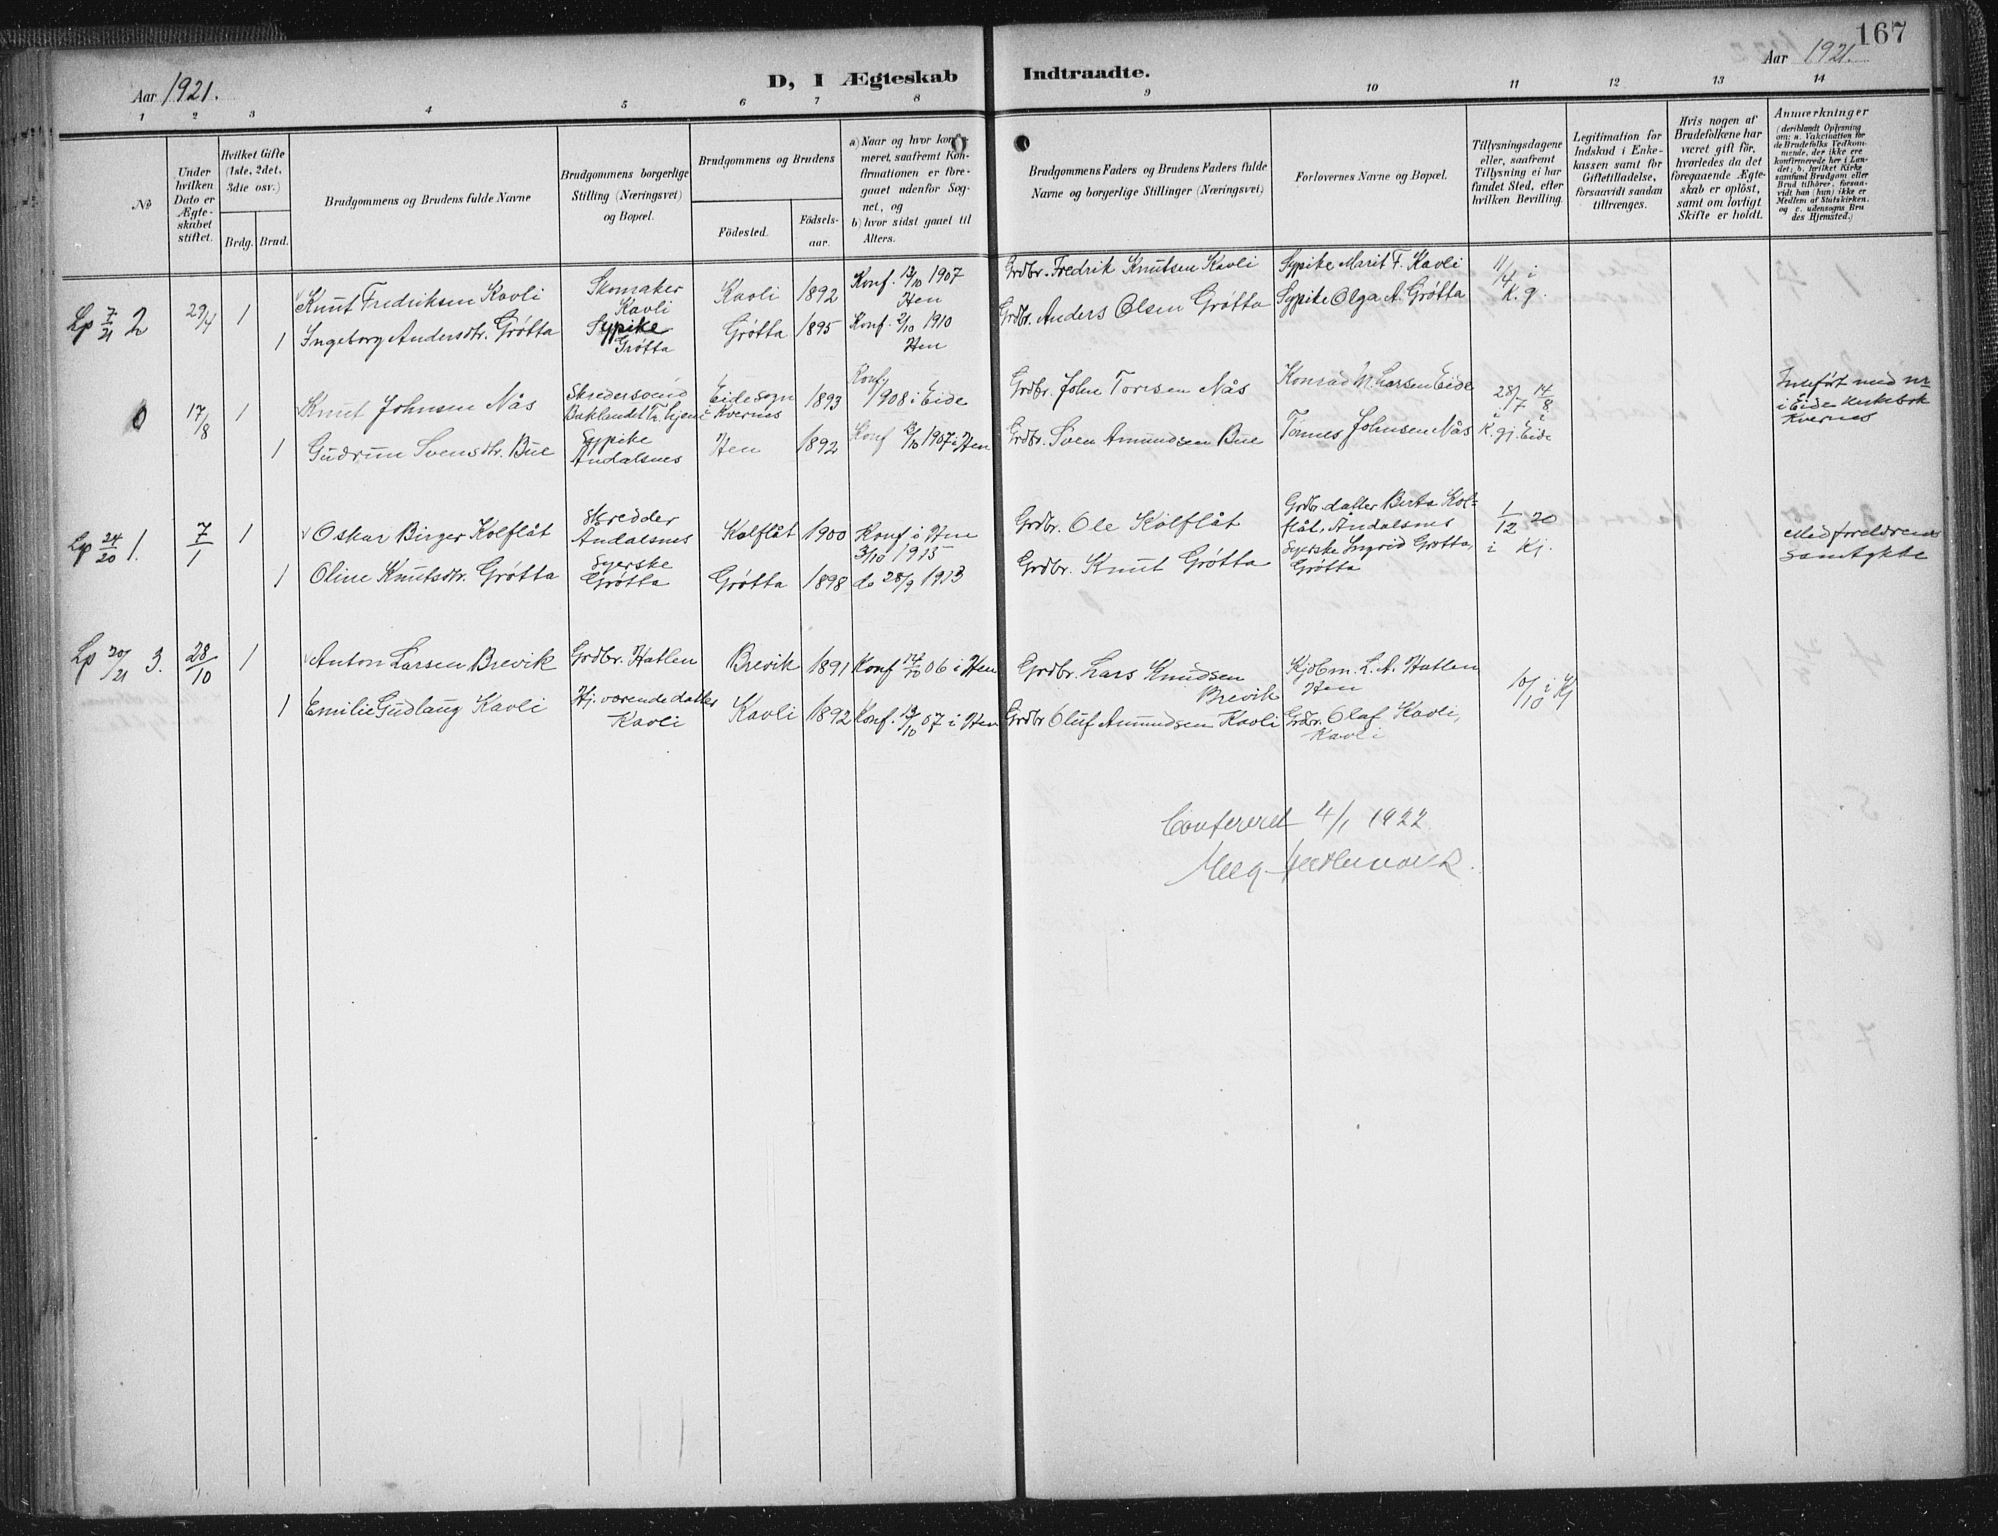 167
Aar 1921.
D, I Ægteskab Indtraadte.
Aar 1921.
1 2 3 4 5 6 7 8 9 10 11 12 13 14
No
Under hvilken Dato er Ægteskabet stiftet.
Hvilket Gifte (1ste, 2det, 3die osv.)
Brdg. Brud.
Brudgommens og Brudens fulde Navne
Brudgommens borgerlige Stilling (Næringsvei) og Bopæl.
Brudgommens og Brudens
Fødested.
Fødselsaar.
a) Naar og hvor konfirmeret, saafremt Konfirmationen er foregaaet udenfor Sognet, og
b) hvor sidst gaaet til Alters.
Brudgommens Faders og Brudens Faders fulde Navne og borgerlige Stillinger (Næringsvei)
Forlovernes Navne og Bopæl.
Tillysningsdagene eller, saafremt Tillysning ei har fundet Sted, efter hvilken Bevilling.
Legitimation for Indskud i Enkekassen samt for Giftetilladelse, forsaavidt saadan tiltrænges.
Hvis nogen af Brudefolkene har været gift før, hvorledes da det foregaaende Ægteskab er opløst, samt om lovligt Skifte er holdt.
Anmærkninger
(deriblandt Oplysning om: a. Vakcination for de Brudefolks Vedkommende, der ikke ere konfirmerede her i Landet; b. hvilket Kirkesamfund Brudgom eller Brud tilhører, forsaavidt han (hun) ikke er Medlem af Statskirken, og c. udensogns Brudes Hjemsted.)
Lp 7/21 2 29/4 1 Knut Fredriksen Kavli Skomaker Kavli Kavli 1892 Konf. 13/10 1907 Hen Grdbr. Fredrik Knutsen Kavli Sypike Marit F. Kavli 11/4 i K.g.
1 Ingeborg Andersdtr. Grøtta Sypike Grøtta Grøtta 1895 Konf. 2/10 1910 Hen Grdbr. Anders Olsen Grøtta Sypike Olga A. Grøtta
0 17/8 1 Knut Johnsen Nås Skredersvend Baklandet Tr.hjem Eide sogn Kvernes 1893 Konf 1908 i Eide Grdbr. John Toresen Nås Konrad M. Larsen Eide 28/7 i K.gj. 14/8 i Eide Indført med nr i Eide kirkebok Kvernes
1 Gudrun Svensdtr. Bue Sypike Åndalsnes Hen 1892 Konf 13/10 1907 i Hen Grdbr. Sven Amundsen Bue Tønnes Johnsen Nås
Lp 24/20 1. 7/1 1 Oskar Birger Kolflåt Skredder Åndalsnes Kolflåt 1900 Konf i Hen 3/10 1915 Grdbr. Ole Kolflåt Grdbr datter Berta Kolflåt. Åndalsnes 1/12 20 i Kj. Med foreldrenes samtykke
1 Oline Knutsdtr. Grøtta Syerske Grøtta Grøtta 1898 do 28/9 1913 Grdbr. Knut Grøtta Syerske Ingrid Grøtta, Grøtta
Lp 20/21 3. 28/10 1 Anton Larsen Brevik Grdbr. Hatlen Brevik 1891 Konf 14/10 06 i Hen Grdbr. Lars Knudsen Brevik Kjøbm. L. A. Hatlen Hen 10/10 i Kj
1 Emilie Gudlaug Kavli Hj. værende datter Kavli Kavli 1892 Konf. 13/10 07 i Hen Grdbr Oluf Amundsen Kavli Grdbr. Olaf Kavli, Kavli
Confereret 4/1 1922.